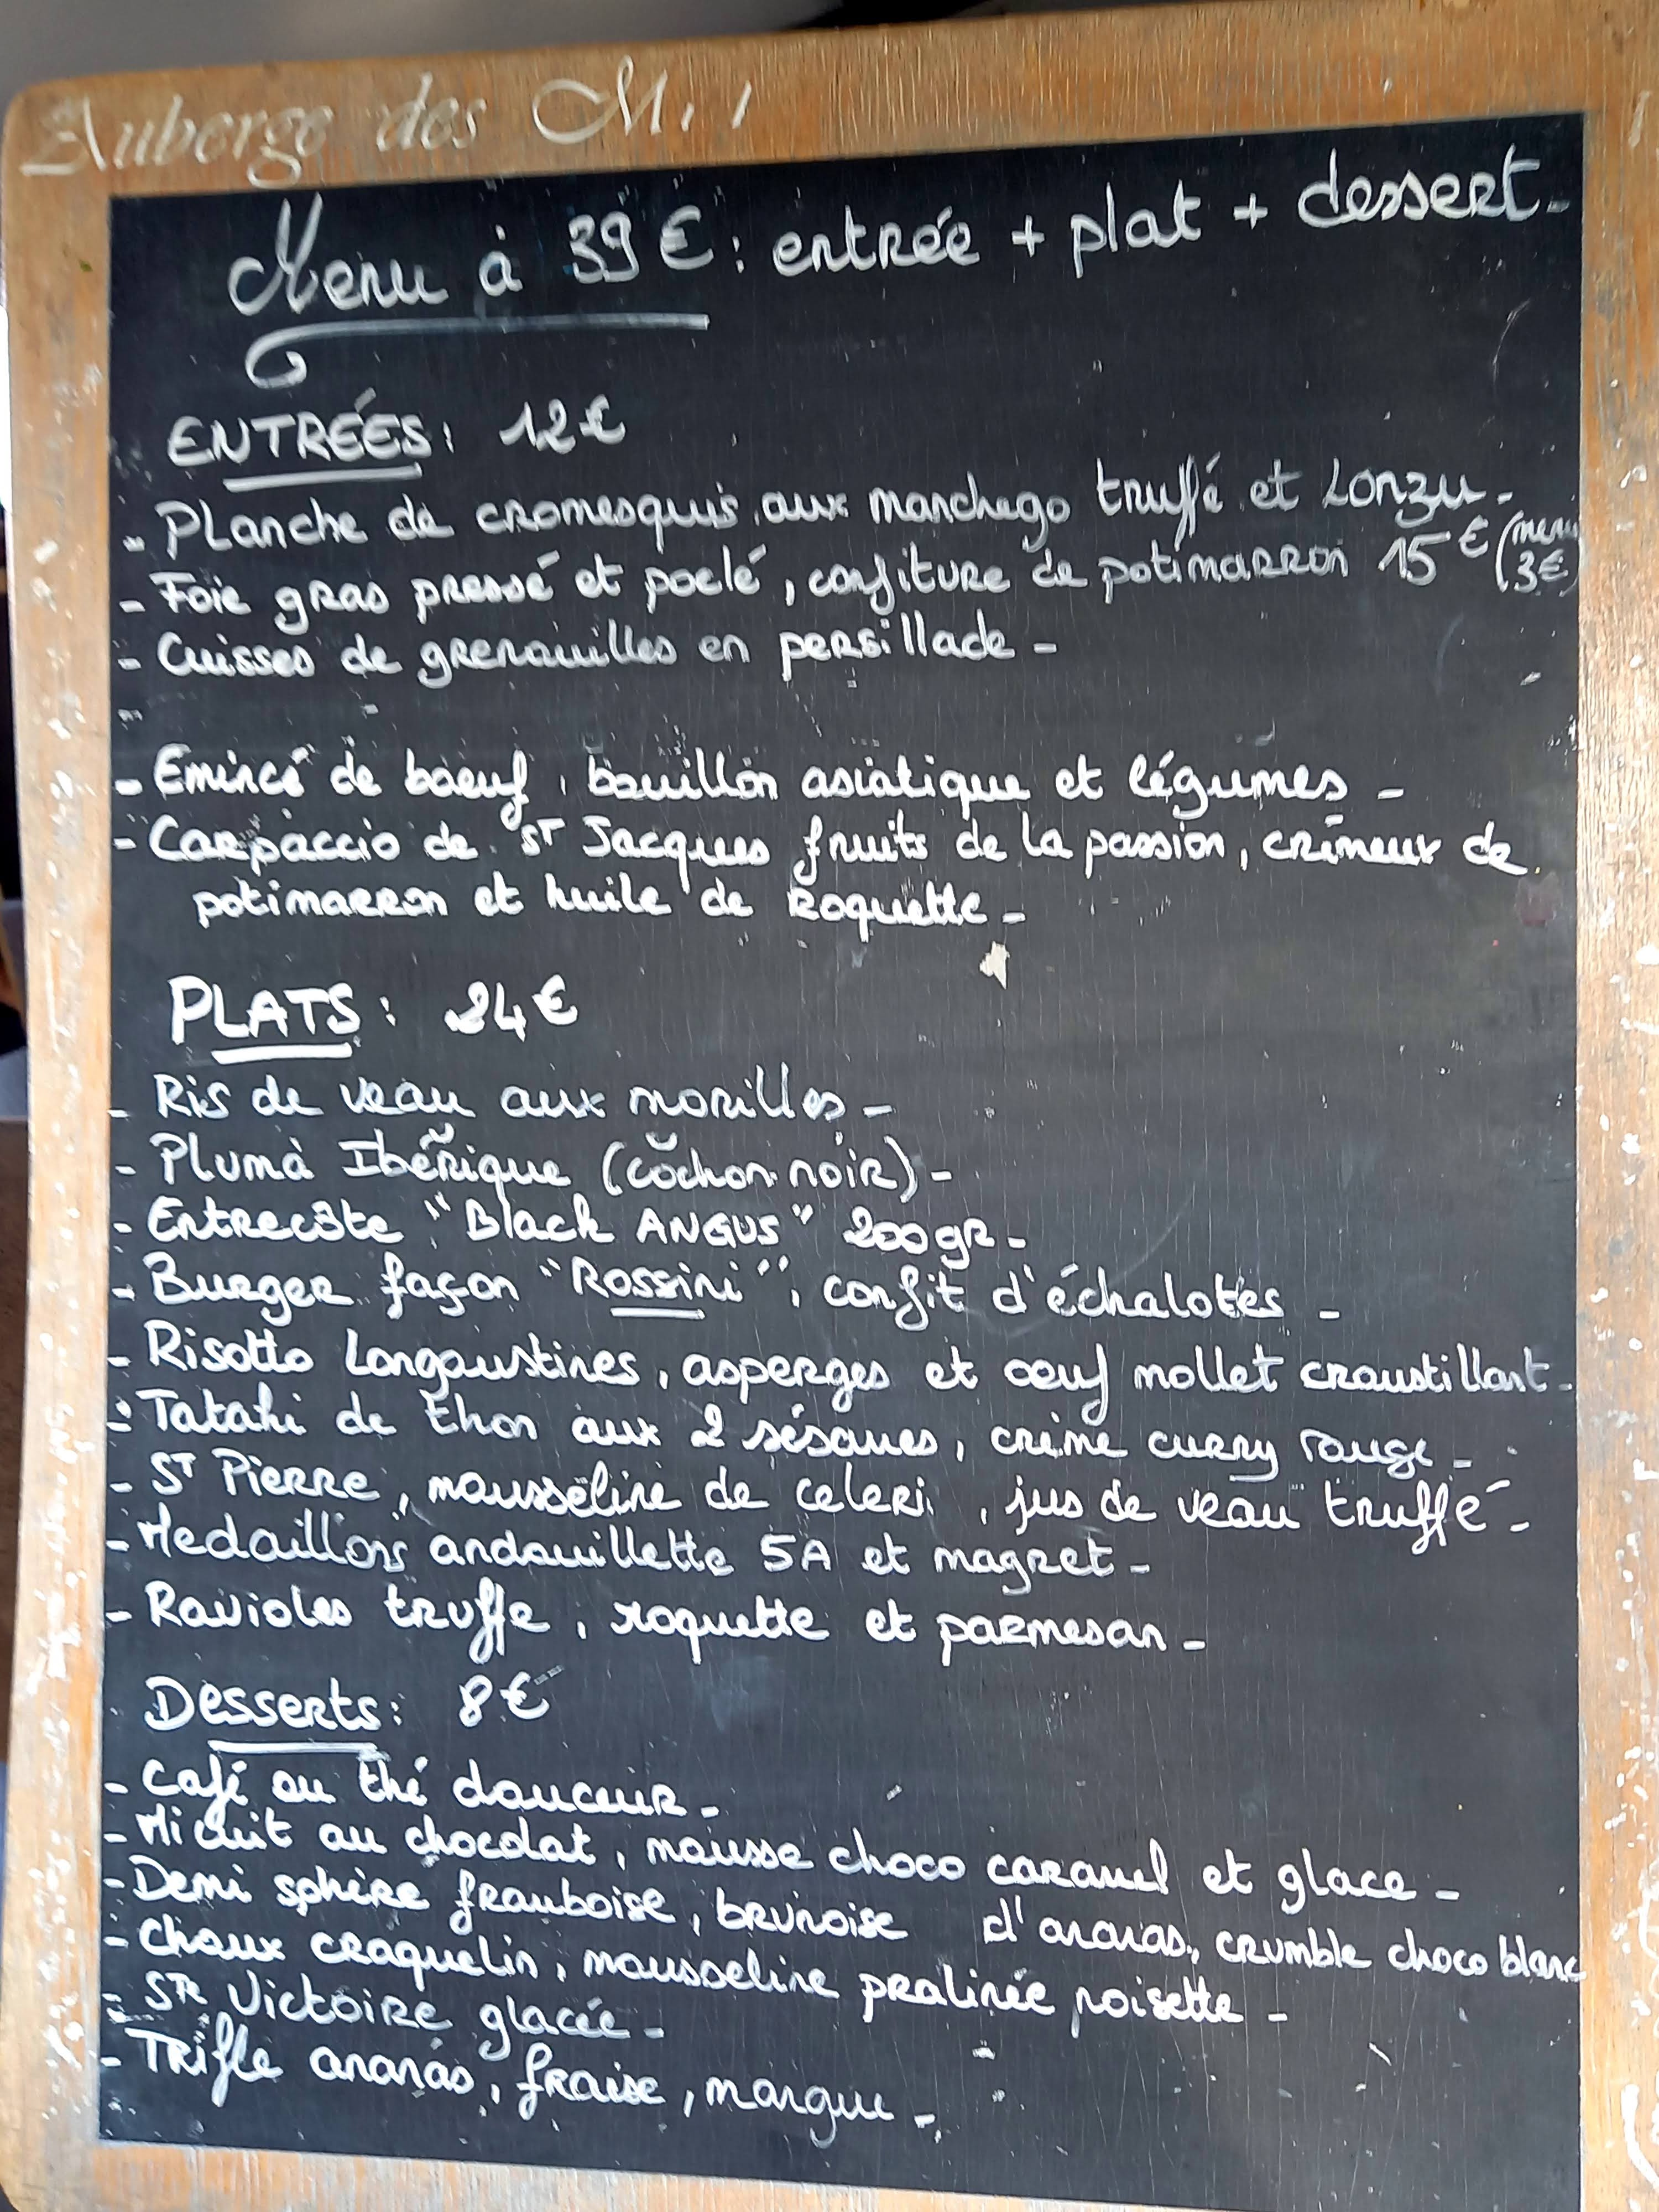 Auberge des
Menu à 39€ : entrée + plat + dessert-
ENTRÉES: 12€
- Planche de cromesquis aux manchego truffé et Lonzu-
- Foie gras pressé et poelé, confiture de potimarron 15€ (menu
3€)
- Cuisses de grenouilles en persillade -
- Emincé de boeuf, bouillon asiatique et légumes -
- Carpaccio de ST Jacques fruits de la passion, crèmeux de
potimarron et huile de Roquette -
PLATS: 24€
- Ris de veau aux morilles -
- Pluma Ibérique (cochon noir) -
- Entrecôte "Black ANGUS" 200gr -
- Burger façon "Rossini", confit d'échalotes -
- Risotto Langoustines, asperges et oeuf mollet croustillant -
- Tataki de thon aux 2 sésames, crème curry rouge -
- ST Pierre, mousseline de celeri, jus de veau truffé -
- Medaillons andouillette 5A et magret -
- Ravioles truffe, roquette et parmesan -
Desserts: 8€
- Café ou thé douceur -
- Mi cuit au chocolat, mousse choco caramel et glace -
- Demi sphère framboise, brunoise d'ananas, crumble choco blanc
- Choux craquelin, mousseline pralinée noisette -
- STE Victoire glacée -
- Trifle ananas, fraise, mangue -